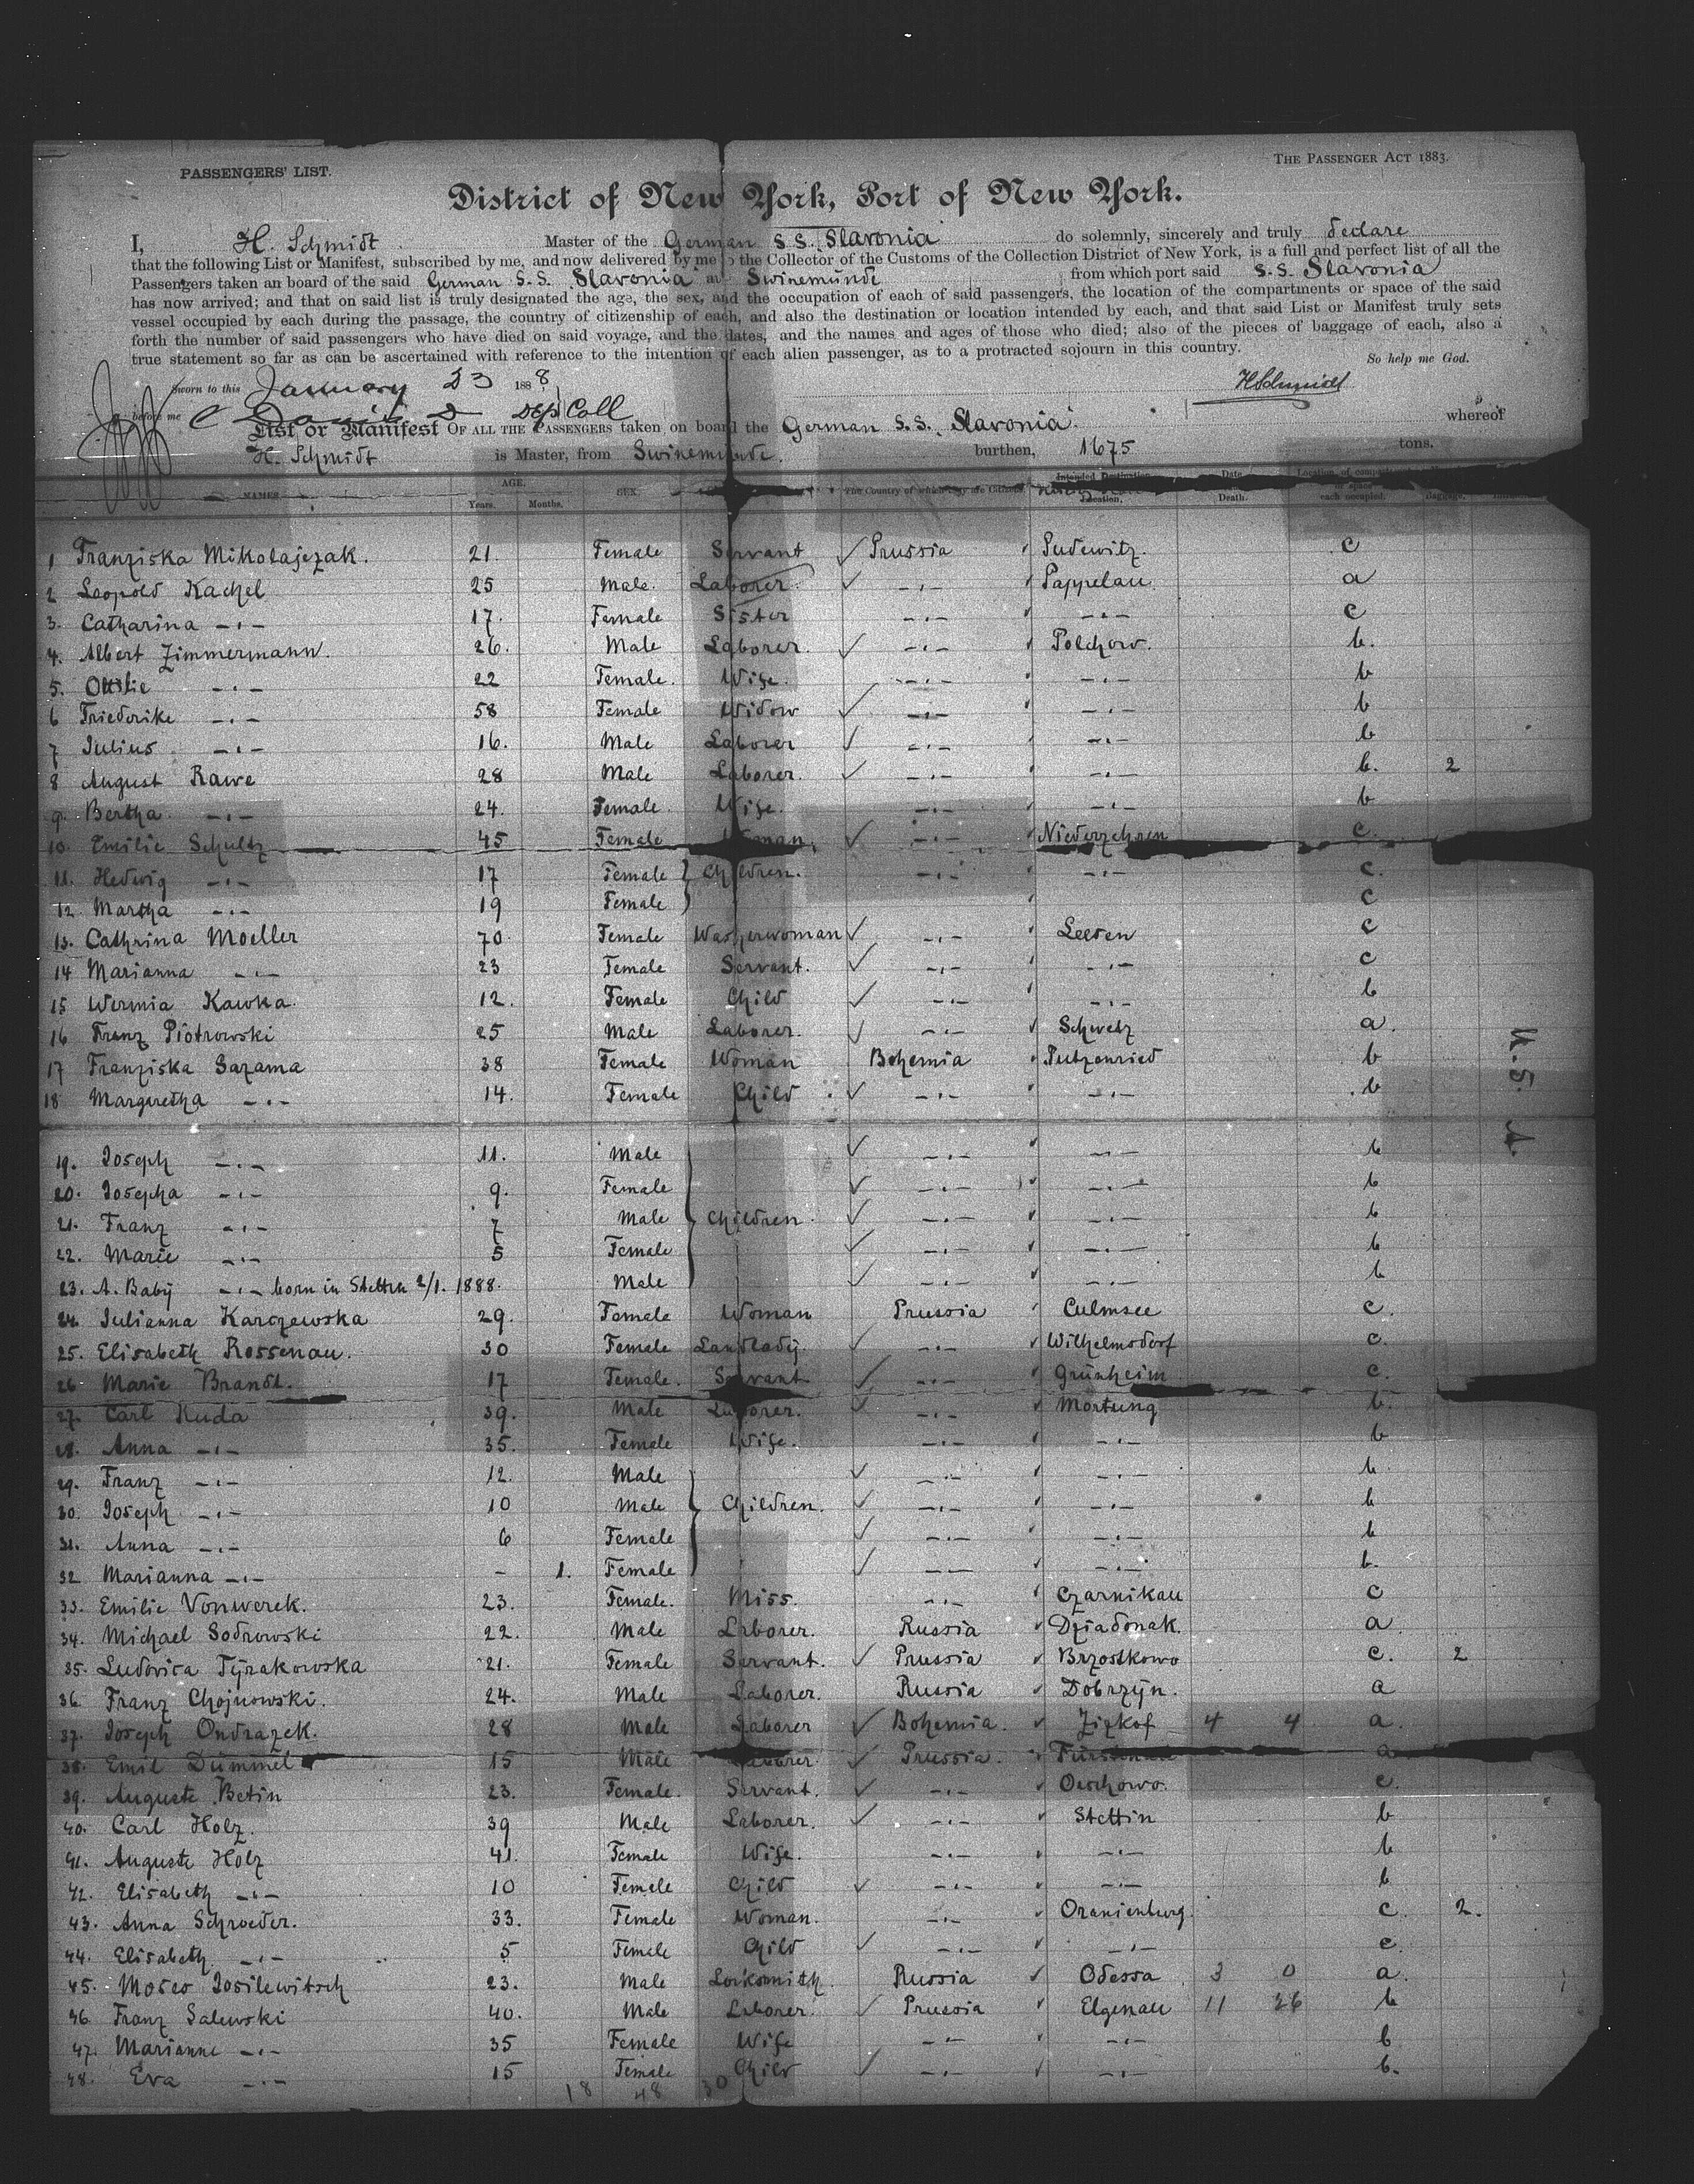 PASSENGERS' LIST.
THE PASSENGER ACT 1883.
District of New York, Port of New York.
I, H. Schmidt Master of the German S.S. Slavonia do solemnly, sincerely and truly declare
that the following List or Manifest, subscribed by me, and now delivered by me to the Collector of the Customs of the Collection District of New York, is a full and perfect list of all the
Passengers taken an board of the said German S.S. Slavonia at Swinemünde from which port said S.S. Slavonia
has now arrived; and that on said list is truly designated the age, the sex, and the occupation of each of said passengers, the location of the compartments or space of the said
vessel occupied by each during the passage, the country of citizenship of each, and also the destination or location intended by each, and that said List or Manifest truly sets
forth the number of said passengers who have died on said voyage, and the dates, and the names and ages of those who died; also of the pieces of baggage of each, also a
true statement so far as can be ascertained with reference to the intention of each alien passenger, as to a protracted sojourn in this country.
So help me God.
Sworn to this January 23 1888
HSchmidt
before me Dep Coll
List or Manifest OF ALL THE PASSENGERS taken on board the German S.S. Slavonia whereof
H. Schmidt is Master, from Swinemünde. burthen, 1675 tons.
NAMES. AGE. Years. Months. SEX. The Country of which they are Citizens. Intended Destination Location. Date Death. Location of compartment or space each occupied. Baggage.
1 Franziska Mikolajezak. 21. Female Servant Prussia Pudewitz. c
2 Leopold Kachel 25 Male. Laborer. -"- Pappelau. a
3. Catharina -"- 17. Female Sister -"- -"- c
4. Albert Zimmermann. 26. Male Laborer. -"- Polchow. b.
5. Ottilie -"- 22 Female. Wife. -"- -"- b
6 Friederike -"- 58 Female Widow -"- -"- b
7 Julius -"- 16. Male Laborer -"- -"- b
8 August Rawe 28 Male Laborer. -"- -"- b. 2
9. Bertha -"- 24. Female. Wife. -"- -"- b
10. Emilie Schultz 45 Female Woman. -"- Niederzehren c.
11. Hedwig -"- 17 Female Children. -"- -"- c.
12. Martha -"- 19 Female c
13. Cathrina Moeller 70. Female Washerwoman -"- Leesen c
14 Marianna -"- 23 Female Servant. -"- -"- c
15 Wermia Kawka. 12. Female Child -"- -"- b
16 Franz Piotrowski 25 Male Laborer. -"- Schwetz a.
17 Franziska Sazama 38 Female Woman Bohemia Putzenried b
18 Margaretha -"- 14. Female Child -"- -"- b
19. Joseph -"- 11. Male -"- -"- b
20. Josepha -"- 9. Female -"- -"- b
21. Franz -"- 7 Male Children. -"- -"- b
22. Marie -"- 5 Female -"- -"- b
23. A. Baby -"- born in Stettin 2/1. 1888. Male -"- -"- b
24. Julianna Karczewska 29. Female Woman Prussia Culmsee c.
25. Elisabeth Rossenau. 30 Female Landlady. -"- Wilhelmsdorf c.
26 Marie Brandt. 17 Female. Servant -"- Grünheim c.
27. Carl Kuda 39. Male Laborer. -"- Mortung b.
28. Anna -"- 35. Female Wife. -"- -"- b
29. Franz -"- 12. Male -"- -"- b
30. Joseph -"- 10 Male Children. -"- -"- b
31. Anna -"- 6 Female -"- -"- b
32 Marianna -"- - 1. Female -"- -"- b.
33. Emilie Vonwerek. 23. Female. Miss. -"- Czarnikau c
34. Michael Sodrowski 22. Male Laborer. Russia Dziadonak. a
35. Ludovica Tyrakowska 21. Female Servant. Prussia Brzostkowo c. 2
36. Franz Chojnowski. 24. Male Laborer. Russia Dobrzyn. a
37. Joseph Ondrazek. 28 Male Laborer Bohemia. Zizkof 4 4 a.
38. Emil Dümmel 15 Male Laborer. Prussia. a
39. Auguste Betin 23. Female. Servant. -"- Oschowo. c.
40. Carl Holz. 39 Male Laborer. -"- Stettin b
41. Auguste Holz 41. Female Wife. -"- -"- b
42. Elisabeth -"- 10 Female Child -"- -"- b
43. Anna Schroeder. 33. Female Woman. -"- Oranienburg. c. 2.
44. Elisabeth -"- 5 Female Child -"- -"- c.
45. Moses Josilewitsch 23. Male Locksmith. Russia Odessa 3 0 a.
46 Franz Salewski 40. Male Laborer. Prussia Elgenau 11 26 b
47. Marianne -"- 35 Female Wife -"- -"- b
48. Eva -"- 15 Female Child -"- -"- b.
18 48 30